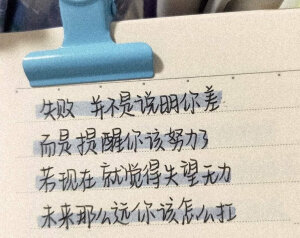 失败 并不是说明你差
而是提醒你该努力了
若现在就觉得失望无力
未来那么远你该怎么扛